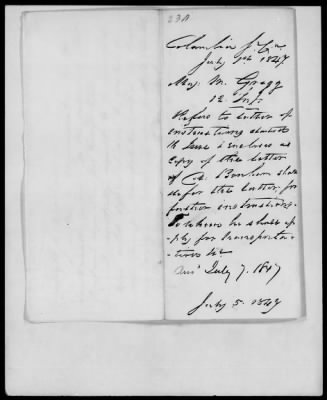 Columbia S. Ca.
July 1st 1847
Maj. M. Gregg
12 Inf.
Refers to letter of
instructions dated
June & encloses a
copy of the letter
of Col. Bonham
refer the latter for
further instructions.
he shall ap-
ply for transporta-
tion &c
July 7. 1847
July 5. 1847